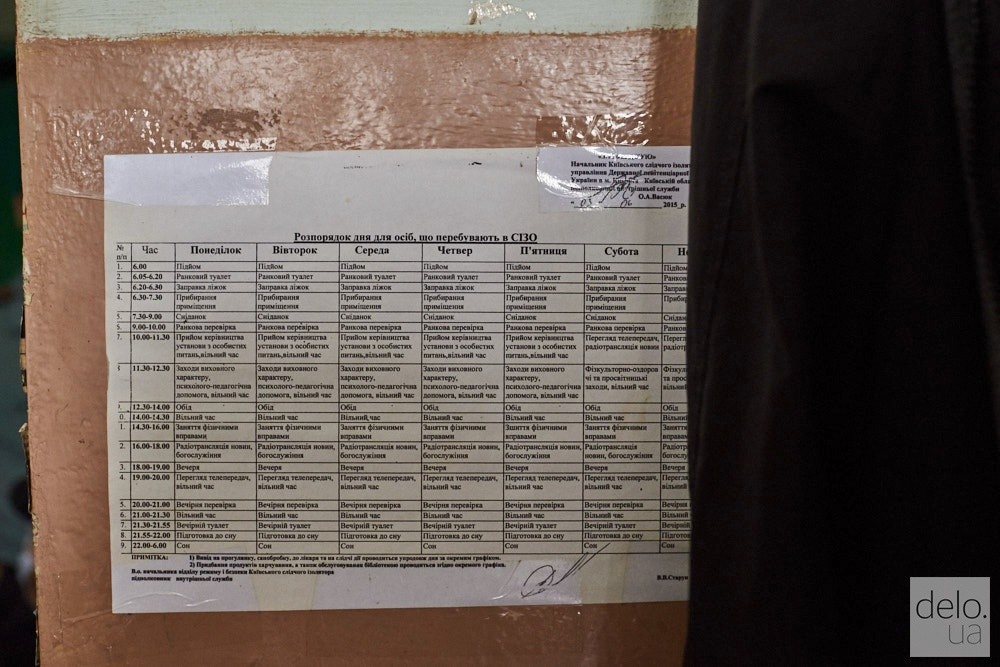 Начальник Київського слідчого ізоля
управління Державної пенітенціарної
України в м. Києві та Київській обла
внутрішньої служби
О.А.Васюк
03 06 2015_р.
Розпорядок дня для осіб, що перебувають в СІЗО
№ п/п Час Понеділок Вівторок Середа Четвер П'ятниця Субота Не
1. 6.00 Підйом Підйом Підйом Підйом Підйом Підйом Підйом
2. 6.05-6.20 Ранковий туалет Ранковий туалет Ранковий туалет Ранковий туалет Ранковий туалет Ранковий туалет Ранков
3. 6.20-6.30 Заправка ліжок Заправка ліжок Заправка ліжок Заправка ліжок Заправка ліжок Заправка ліжок Заправ
4. 6.30-7.30 Прибирання Прибирання Прибирання Прибирання Прибирання Прибирання Прибир
приміщення приміщення приміщення приміщення приміщення приміщення
5. 7.30-9.00 Сніданок Сніданок Сніданок Сніданок Сніданок Сніданок Снідан
6. 9.00-10.00 Ранкова перевірка Ранкова перевірка Ранкова перевірка Ранкова перевірка Ранкова перевірка Ранкова перевірка Ранков
7. 10.00-11.30 Прийом керівництва Прийом керівництва Прийом керівництва Прийом керівництва Прийом керівництва Перегляд телепередач, Перегл
установи з особистих установи з особистих установи з особистих установи з особистих установи з особистих радіотрансляція новин радіотр
питань,вільний час питань,вільний час питань,вільний час питань,вільний час питань,вільний час
11.30-12.30 Заходи виховного Заходи виховного Заходи виховного Заходи виховного Заходи виховного Фізкультурно-оздоров Фізкул
характеру, характеру, характеру, характеру, характеру, чі та просвітницькі та прос
психолого-педагогічна психолого-педагогічна психолого-педагогічна психолого-педагогічна психолого-педагогічна заходи, вільний час вільний
допомога, вільний час допомога, вільний час допомога, вільний час допомога, вільний час допомога, вільний час
12.30-14.00 Обід Обід Обід Обід Обід Обід Обід
0. 14.00-14.30 Вільний час Вільний час Вільний час Вільний час Вільний час Вільний час Вільний
1. 14.30-16.00 Заняття фізичними Заняття фізичними Заняття фізичними Заняття фізичними Заняття фізичними Заняття фізичними Заняття
вправами вправами вправами вправами вправами вправами вправам
2. 16.00-18.00 Радіотрансляція новин, Радіотрансляція новин, Радіотрансляція новин, Радіотрансляція новин, Радіотрансляція новин, Радіотрансляція новин, Радіотр
богослужіння богослужіння богослужіння богослужіння богослужіння богослужіння богослу
3. 18.00-19.00 Вечеря Вечеря Вечеря Вечеря Вечеря Вечеря Вечеря
4. 19.00-20.00 Перегляд телепередач, Перегляд телепередач, Перегляд телепередач, Перегляд телепередач, Перегляд телепередач, Перегляд телепередач, Перегл
вільний час вільний час вільний час вільний час вільний час вільний час вільний
5. 20.00-21.00 Вечірня перевірка Вечірня перевірка Вечірня перевірка Вечірня перевірка Вечірня перевірка Вечірня перевірка Вечірня
6. 21.00-21.30 Вільний час Вільний час Вільний час Вільний час Вільний час Вільний час Вільний
7. 21.30-21.55 Вечірній туалет Вечірній туалет Вечірній туалет Вечірній туалет Вечірній туалет Вечірній туалет Вечірні
8. 21.55-22.00 Підготовка до сну Підготовка до сну Підготовка до сну Підготовка до сну Підготовка до сну Підготовка до сну Підгот
9. 22.00-6.00 Сон Сон Сон Сон Сон Сон Сон
ПРИМІТКА: 1) Вивід на прогулянку, санобробку, до лікаря та на слідчі дії проводиться упродовж дня за окремим графіком.
2) Придбання продуктів харчування, а також обслуговування бібліотекою проводиться згідно окремого графіка.
В.о. начальника відділу режиму і безпеки Київського слідчого ізолятора
підполковник внутрішньої служби В.В.Старун
delo.
ua